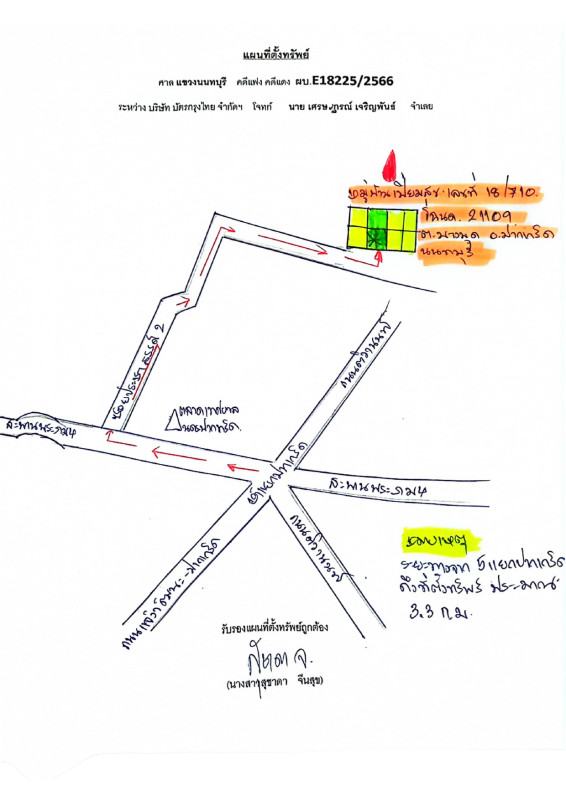 แผนที่ตั้งทรัพย์
ศาล แขวงนนทบุรี คดีแพ่ง คดีแดง ผบ.E18225/2566
ระหว่าง บริษัท บัตรกรุงไทย จำกัดฯ โจทก์ นาย เศรษฐกรณ์ เจริญพันธ์ จำเลย
หมู่บ้านเปี่ยมสุข เลขที่ 18/710.
โฉนด. 21109
ต.บางพูด อ.ปากเกร็ด
นนทบุรี
ซอยประชา 2
ถนนติวานนท์
ตลาดเทศบาล
นครปากเกร็ด.
สะพานพระราม4
ห้าแยกปากเกร็ด
สะพานพระราม4
ถนนติวานนท์
ถนนแจ้งวัฒนะ-ปากเกร็ด
หมายเหตุ
ระยะทางจาก 5 แยกปากเกร็ด
ถึงที่ตั้งทรัพย์ ประมาณ
3.3 ก.ม.
รับรองแผนที่ตั้งทรัพย์ถูกต้อง
(นางสาวสุชาดา จีนสุข)